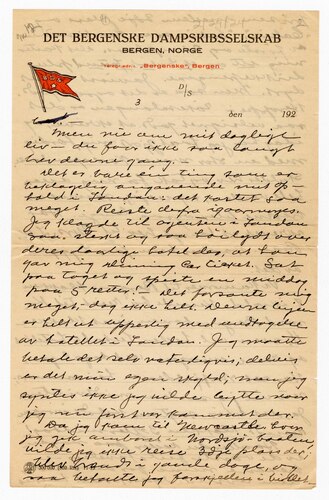 DET BERGENSKE DAMPSKIBSSELSKAB
BERGEN, NORGE
TELEGR.ADR.: „Bergenske", Bergen
D/S
3
den 192
Men nu om mit daglige
liv – du faar ikke saa langt
brev denne gang. –
Det er bare en ting som er
beklagelig angaaende mit op-
hold i London: det kostet saa
meget. Reiste derfra igaarmorges.
Jeg klaget til agenten i London
saa sterkt og saa høilydt over
deres daarlige hotel der, at han
gav mig
paa toget og spiste en middag
paa 5 retter! Det forsonte mig
meget, dog ikke helt. Denne linjen
er helt ut upperlig med undtagelse
av hotellet i London. Jeg maatte
betale det selv naturligvis; delvis
er det min egen skyld; men jeg
syntes ikke jeg vilde flytte naar
jeg nu först var kommet der.
Da jeg kom til Newcastle hvor
jeg gik ombord i Nordsjö-baaten,
vilde jeg ikke reise 3dje plass der,
i gamle dage, og
saa betalte jeg forskjellen i billet